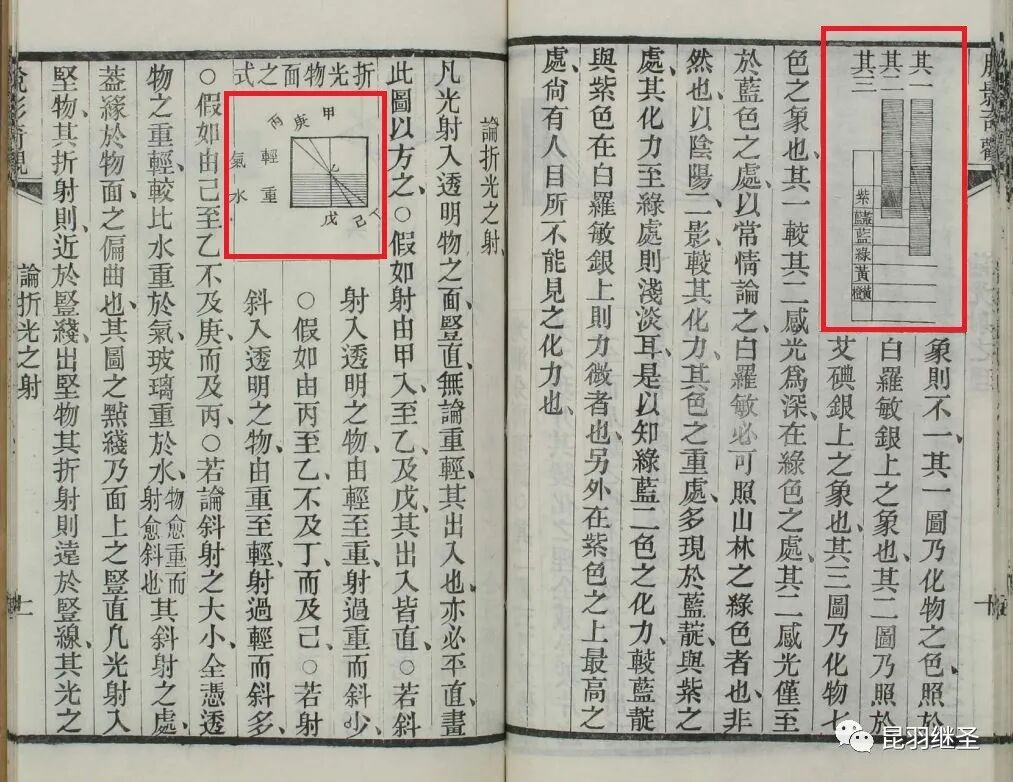 其一
其二
其三
紫
藍
綠
黃
象則不一、其一圖乃化物之色、照於
白羅敏銀上之象也、其二圖乃照於
艾碘銀上之象也、其三圖乃化物七
色之象也、其一較其二感光爲深、在綠色之處、其二感光僅至
於藍色之處、以常情論之、白羅敏必可照山林之綠色者也、非
然也、以陰陽二影較其化力、其色之重處、多現於藍靛與紫之
處、其化力至綠處則淺淡耳、是以知綠藍二色之化力、較藍靛
與紫色在白羅敏銀上、則力微者也、另外在紫色之上最高之
處、尚有人目所不能見之化力也、
論折光之射、
凡光射入透明物之面、豎直無論重輕、其出入也、亦必平直、畫
此圖以方之、○假如射由甲入至乙及戊、其出入皆直、○若斜
折光物面之式
甲
庚
丙
乙
輕 氣
重 水
戊
己
丁
射入透明之物、由輕至重、射過重而斜少、
○假如由丙至乙、不及丁、而及己、○若射
斜入透明之物、由重至輕、射過輕而斜多、
○假如由己至乙、不及庚、而及丙、○若論斜射之大小、全憑透
物之重輕、較比水重於氣、玻璃重於水、物愈重而射愈斜也其斜射之處、
蓋緣於物面之偏曲也、其圖之點綫、乃面上之豎直、凡光射入
堅物、其折射則近於豎綫、出堅物其折射則遠於豎線、其光之
論折光之射
昆羽继圣